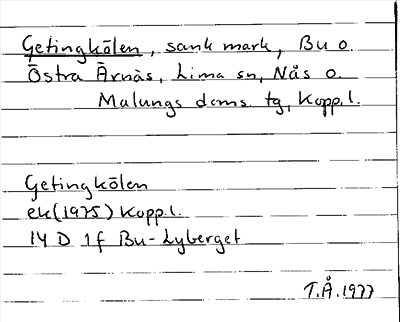 Getingkölen, sank mark, Bu o.
Östra Ärnäs, Lima sn, Nås o.
Malungs doms. tg, Kopp.l.
Getingkölen
ek(1975) Kopp.l.
14 D 1f Bu-Lyberget
T.Å.1977